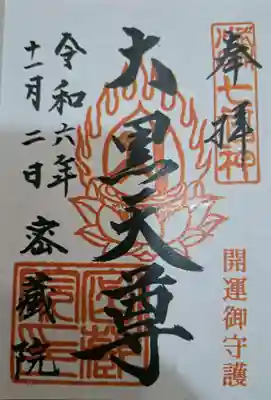 奉拝
七福神
大黒天尊
令和六年
十一月二日
密蔵院
開運御守護